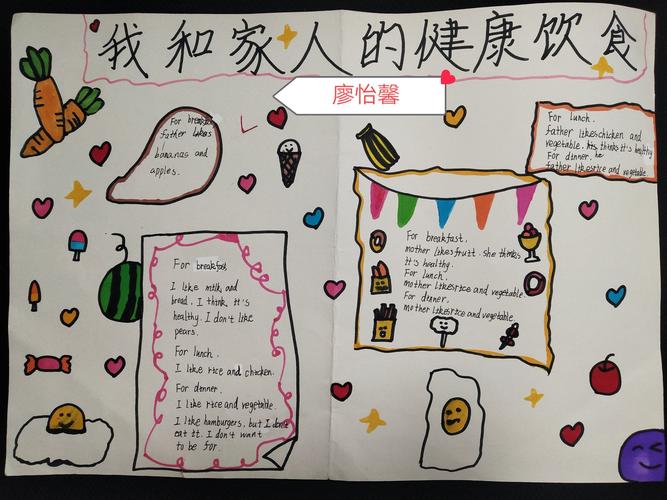 我和家人的健康饮食
廖怡馨
For breakfast
father likes
bananas and
apples.
For lunch.
father likeschicken and
vegetable. his thinks it's healthy
For dinner, he
father likesrice and vegetable.
For breakfast,
mother likesfruit. she thinks
it's healthy.
For lunch.
mother likesrice and vegetable.
For dinner.
mother likesrice and vegetable.
For breakfast,
I like milk and
bread. I think it's
healthy. I don't like
pears.
For lunch.
I like rice and chicken.
For dinner.
I like rice and vegetable.
I like hamburgers. but I don't
eat it. I don't want
to be for.